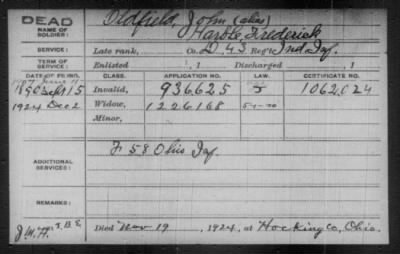 DEAD
NAME OF SOLDIER: Oldfield, John (alias)
Harble, Frederick
SERVICE: Late rank, Co. D, 43 Reg't Ind. Inf.
TERM OF SERVICE: Enlisted , 1 Discharged , 1
DATE OF FILING. CLASS. APPLICATION NO. LAW. CERTIFICATE NO.
Invalid, 936.625 1062.024
1924 Dec 2 Widow, 1226168
Minor,
ADDITIONAL SERVICES: F 58 Ohio Inf.
REMARKS:
Died Nov 19, 1924, at Hocking Co, Ohio.